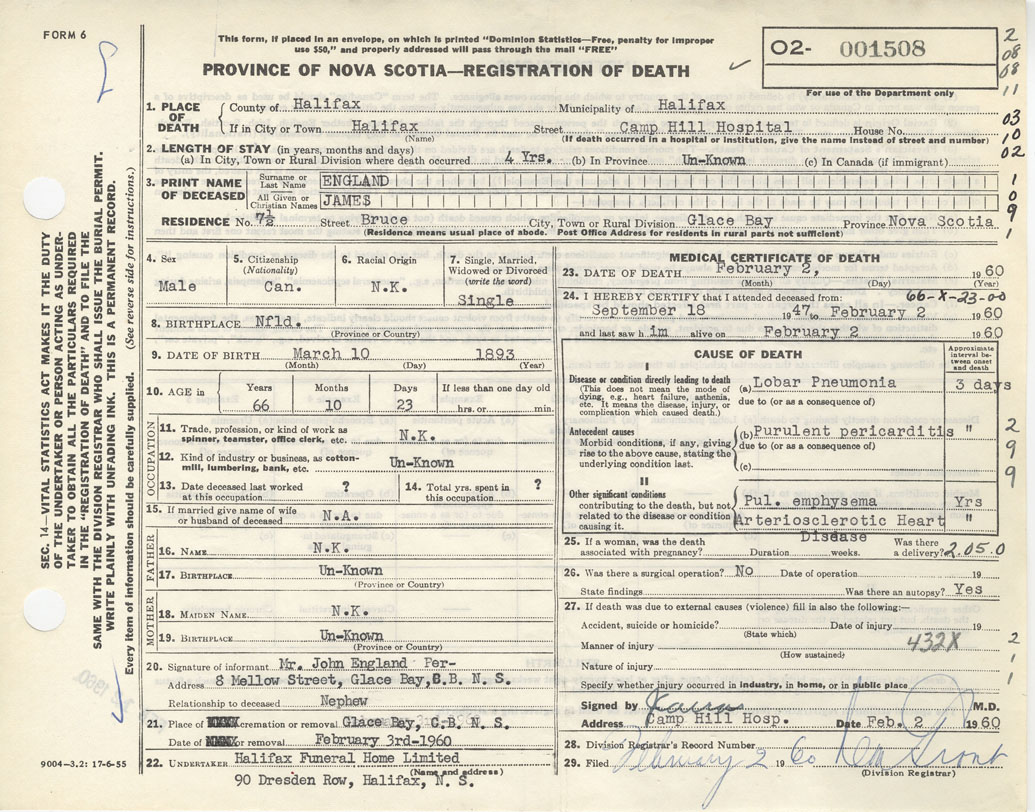 FORM 6
This form, if placed in an envelope, on which is printed "Dominion Statistics—Free, penalty for improper
use $50," and properly addressed will pass through the mail "FREE"
PROVINCE OF NOVA SCOTIA—REGISTRATION OF DEATH
O2- 001508
For use of the Department only
2
08
08
11
03
10
02
1
0
9
1
SEC. 14—VITAL STATISTICS ACT MAKES IT THE DUTY
OF THE UNDERTAKER OR PERSON ACTING AS UNDER-
TAKER TO OBTAIN ALL THE PARTICULARS REQUIRED
IN THE "REGISTRATION OF DEATH" AND TO FILE THE
SAME WITH THE DIVISION REGISTRAR WHO SHALL ISSUE THE BURIAL PERMIT.
WRITE PLAINLY WITH UNFADING INK. THIS IS A PERMANENT RECORD.
Every item of information should be carefully supplied. (See reverse side for instructions.)
1. PLACE OF DEATH
County of Halifax Municipality of Halifax
If in City or Town Halifax Street Camp Hill Hospital House No.
(Name) (If death occurred in a hospital or institution, give the name instead of street and number)
2. LENGTH OF STAY (in years, months and days)
(a) In City, Town or Rural Division where death occurred 4 Yrs. (b) In Province Un-Known (c) In Canada (if immigrant)
3. PRINT NAME OF DECEASED
Surname or Last Name ENGLAND
All Given or Christian Names JAMES
RESIDENCE No. 7½ Street Bruce City, Town or Rural Division Glace Bay Province Nova Scotia
(Residence means usual place of abode. Post Office Address for residents in rural parts not sufficient)
4. Sex
Male
5. Citizenship
(Nationality)
Can.
6. Racial Origin
N.K.
7. Single, Married,
Widowed or Divorced
(write the word)
Single
8. BIRTHPLACE Nfld.
(Province or Country)
9. DATE OF BIRTH March 10 1893
(Month) (Day) (Year)
10. AGE in Years Months Days If less than one day old
66 10 23 hrs. or min.
OCCUPATION
11. Trade, profession, or kind of work as
spinner, teamster, office clerk, etc. N.K.
12. Kind of industry or business, as cotton-
mill, lumbering, bank, etc. Un-Known
13. Date deceased last worked
at this occupation ?
14. Total yrs. spent in
this occupation ?
15. If married give name of wife
or husband of deceased N.A.
FATHER
16. NAME N.K.
17. BIRTHPLACE Un-Known
(Province or Country)
MOTHER
18. MAIDEN NAME N.K.
19. BIRTHPLACE Un-Known
(Province or Country)
20. Signature of informant Mr. John England Per-
Address 8 Mellow Street, Glace Bay,B.B. N. S.
Relationship to deceased Nephew
21. Place of cremation or removal Glace Bay, C.B. N. S.
Date of or removal February 3rd-1960
22. UNDERTAKER Halifax Funeral Home Limited
(Name and address)
90 Dresden Row, Halifax, N. S.
9004-3.2: 17-6-55
MEDICAL CERTIFICATE OF DEATH
23. DATE OF DEATH February 2, 1960
(Month) (Day) (Year)
24. I HEREBY CERTIFY that I attended deceased from: 66-X-23-00
September 18 1947 to February 2 1960
and last saw him alive on February 2 1960
CAUSE OF DEATH
Approximate
interval be-
tween onset
and death
I
Disease or condition directly leading to death
(This does not mean the mode of
dying, e.g., heart failure, asthenia,
etc. It means the disease, injury, or
complication which caused death.)
(a) Lobar Pneumonia 3 days
due to (or as a consequence of)
Antecedent causes
Morbid conditions, if any, giving
rise to the above cause, stating the
underlying condition last.
(b) Purulent pericarditis "
due to (or as a consequence of)
(c)
2
9
9
9
II
Other significant conditions
contributing to the death, but not
related to the disease or condition
causing it.
Pul. emphysema Yrs
Arteriosclerotic Heart "
Disease
25. If a woman, was the death
associated with pregnancy? Duration weeks. Was there
a delivery? 2.05.0
26. Was there a surgical operation? No Date of operation 19
State findings Was there an autopsy? Yes
27. If death was due to external causes (violence) fill in also the following:—
Accident, suicide or homicide? Date of injury 19
(State which)
Manner of injury 432X
(How sustained)
Nature of injury
2
1
1
Specify whether injury occurred in industry, in home, or in public place
Signed by M.D.
Address Camp Hill Hosp. Date Feb. 2 1960
28. Division Registrar's Record Number
29. Filed February 2 1960
(Division Registrar)